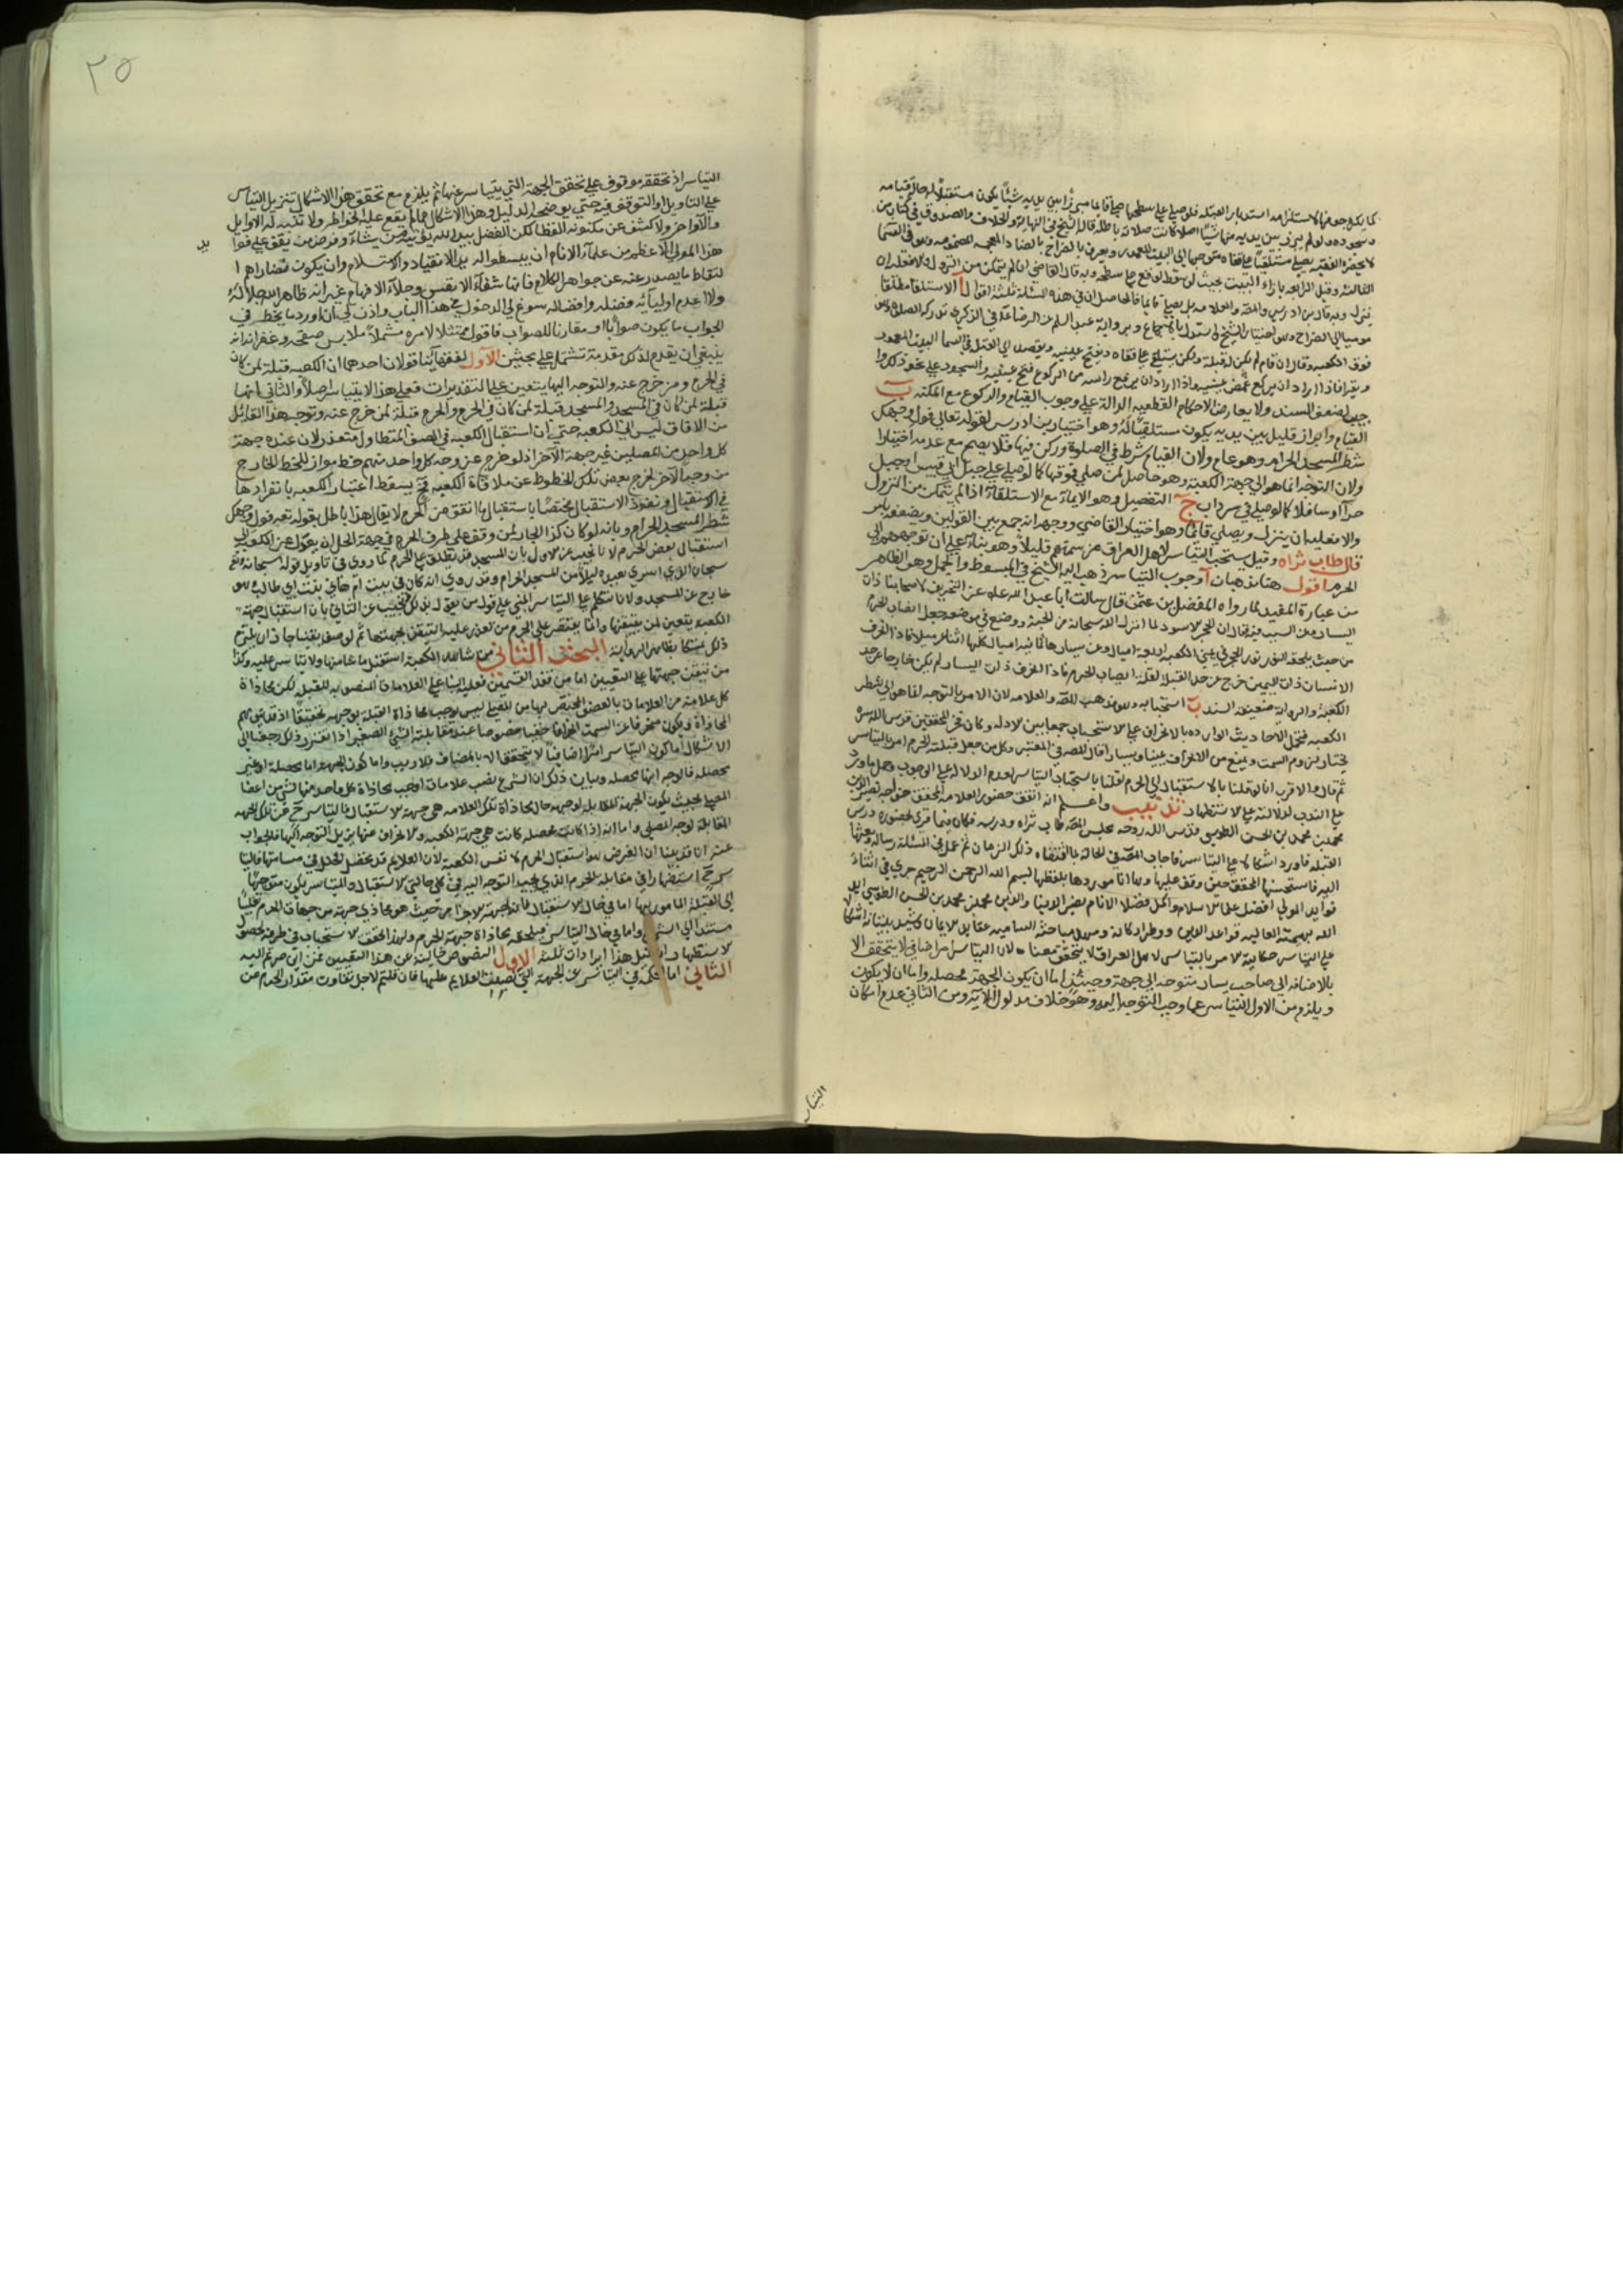 كما يكره جوفها لاستلزامه استدبار القبلة فلو صلى على سطحها صلى قائما مبرزا بين يديه شيئا يكون مستقبلا له حالة قيامه
وسجوده ولو لم يبرز بين يديه منها شيئا اصلا كانت صلاته باطلة قاله الشيخ في النهاية والخلاف والصدوق في كتاب من
لا يحضره الفقيه يصلى مستلقيا على قفاه متوجها الى البيت المعمور ويعرف بالضراح بالضاد المعجمه المضمومه وهو في السما
الثالثة وقيل الرابعه بازاء البيت بحيث لو سقط لوقع على سطحه وبه قال القاضي ان لم يتمكن من النزول والا فعليه ان
ينزل وبه قال بن ادريس والمصنف والعلامه بل يصلي قائما فالحاصل ان في هذه المسئلة ثلثة اقوال آ الاستلقا مطلقا
موميا الى الضراح وهو اختيار الشيخ واستدل بالاجماع وبرواية عبد السلم عن الرضا عليه في الذي تدركه الصلوة وهو
فوق الكعبه قال ان قام لم يكن له قبلة ولكن يستلقي على قفاه ويفتح عينيه ويقصد الى القبلة في السما البيت المعمور
ويقرا فاذا اراد ان يركع غمض عينيه واذا اراد ان يرفع راسه من الركوع فتح عينيه والسجود على نحو ذلك
جيب لضعف السند ولا يعارض الاحكام القطعيه الدالة على وجوب القيام والركوع مع المكنه ب
القيام وابراز قليل بين يديه يكون مستقبلا له وهو اختيار بن ادريس لقوله تعالى فول وجهك
شطر المسجد الحرام وهو عام ولان القيام شرط في الصلوة وركن فيها فلا يصح مع عدمه اختيارا
ولان التوجه انما هو الى جهة الكعبة وهو حاصل لمن صلى فوقها كما لو صلى على جبل ابي قبيس او جبل
حرآ او سافلا كما لو صلى في سرداب ج التفصيل وهو الايمآء مع الاستلقآء اذا لم يتمكن من النزول
والا فعليه ان ينزل ويصلي قائما وهو اختيار القاضي ووجهه انه جمع بين القولين ويضعف بامر
قال طاب ثراه وقيل يستحب التياسر لاهل العراق عن سمتهم قليلا وهو بناء على ان توجههم الى
الحرم اقول هنا مذهبان آ وجوب التياسر ذهب اليه الشيخ في المبسوط والجمل وهو الظاهر
من عبارة المفيد لما رواه المفضل بن عمر قال سالت ابا عبد الله عليه عن التحريف لاصحابنا ذات
اليسار وعن السبب فيه فقال ان الحجر الاسود لما انزل الله سبحانه من الجنة ووضع في موضعه جعل انصاب الحرم
من حيث يلحقه النور نور الحجر فهي عن يمين الكعبه اربعة اميال وعن يسارها ثمانيه اميال كلها اثنا عشر ميلا فاذا انحرف
الانسان ذات اليمين خرج عن حد القبلة لقلة انصاب الحرم فاذا انحرف ذات اليسار لم يكن خارجا عن حد
الكعبة والرواية ضعيفة السند ب استحبابه وهو مذهب المصنف والعلامه لان الامر بالتوجه انما هو الى شطر
الكعبه فتحمل الاحاديث الوارده بالانحراف على الاستحباب جمعا بين الادله وكان فخر المحققين قدس الله سره
يختار لزوم السمت ويمنع من الانحراف يمينا ويسارا قال للضرر المعتبر وكل من جعل قبلته الحرم امر بالتياسر
ثم قال والاقرب انا لو قلنا بالاستقبال الى الحرم لقلنا باستحباب التياسر لعدم الدلالة على الوجوب وحمل ما ورد
على الندب لدلالته على الاستظهار تذنيب واعلم انه اتفق حضور العلامه المحقق خواجه نصير الدين
محمد بن محمد بن الحسن الطوسي قدس الله روحه مجلس المصنف طاب ثراه ودرسه فكان فيما قرى بحضوره درس
القبله فاورد اشكالا على التياسر فاجاب المصنف في الحال بما اقتضاه ذلك الزمان ثم عمل في المسئلة رسالة وبعثها
اليه فاستحسنها المحقق حين وقف عليها وها انا موردها بلفظها بسم الله الرحمن الرحيم جرى في اثناء
فوايد المولى افضل علماء الاسلام واكمل فضلا الانام نصير الدنيا والدين محمد بن محمد بن الحسن الطوسي ايد
الله بهمته العاليه قواعد الدين ووطد اركانه ومهد بمباحثه الساميه عقايد الايمان وشيد بنيانه اشكال
على التياسر حكايته الامر بالتياسر لاهل العراق لا يتحقق معناه لان التياسر امر اضافي لا يتحقق الا
بالاضافه الى صاحب يسار متوجه الى جهة وحينئذ اما ان يكون الجهة محصله واما ان لا يكون
ويلزم من الاول التياسر عما وجب التوجه اليه وهو خلاف مدلول الآية ومن الثاني عدم امكان
التياسر
٢٥
التياسر اذ تحققه موقوف على تحقق الجهة التي يتياسر عنها ثم يلزم مع تحقق هذا الاشكال تنزيل التياسر
على التاويل او التوقف فيه حتى يوضحه الدليل وهذا الاشكال مما لم يقع عليه الخواطر ولا تنبه له الاوايل
والاواخر ولا كشف عن مكنونه الغطا لكن الفضل بيد الله يؤتيه من يشآء وفرض من يقف على فوايد
هذا المولى الاعظم من علمآء الانام ان يبسطوا له يد الانقياد والاستسلام وان يكون قصاراهم ا
لتقاط ما يصدر عنه من جواهر الكلام فانها شفآء الانفس وجلآء الافهام غير انه ظاهر الله جلاله
ولا اعدم اوليآئه فضله وافضاله سوغ لي الدخول في هذا الباب واذن لي ان اورد ما يخطر في
الجواب ما يكون صوابا او مقاربا للصواب فاقول ممتثلا لامره مشتملا ملابس صفحه وغفرانه انه
ينبغي ان يقدم لذلك مقدمة تشتمل على بحثين الاول لفقهآئنا قولان احدهما ان الكعبه قبلة لمن كان
في الحرم ومن خرج عنه والتوجه اليها يتعين على التقديرات فعلى هذا لا يتياسر اصلا والثاني انها
قبلة لمن كان في المسجد والمسجد قبلة لمن كان في الحرم والحرم قبلة لمن خرج عنه وتوجه هذا القائل
من الافاق ليس الى الكعبه حتى ان استقبال الكعبه في الصف المتطاول متعذر لان عنده جهة
كل واحد من المصلين غير جهة الآخر اذ لو خرج عن وجه كل واحد منهم خط مواز للخط الخارج
من وجه الآخر لخرج بعض تلك الخطوط عن ملاقاة الكعبه فح يسقط اعتبار الكعبه بانفرادها
في الاستقبال ويعود الاستقبال مختصا باستقبال ما اتفق من الحرم لا يقال هذا باطل بقوله تعه فول وجهك
شطر المسجد الحرام وبانه لو كان كذا لجاز لمن وقف على طرف الحرم في جهة الحل ان يعدل عن الكعبة الى
استقبال بعض الحرم لانا نجيب عن الاول بان المسجد قد يطلق على الحرم كما روي في تاويل قوله سبحانه وتع
سبحان الذي اسرى بعبده ليلا من المسجد الحرام وقد روي انه كان في بيت ام هاني بنت ابي طالب وهو
خارج عن المسجد ولانا نتكلم على التياسر المبني على قول من يقول بذلك ونجيب عن الثاني بان استقبال جهة
الكعبه يتعين لمن يتيقنها وانما يقتصر على الحرم من تعذر عليه التيقن بجهتها ثم لو ضعفنا جاز ان يلتزم
ذلك تمسكا بظاهر الرواية البحث الثاني من شاهد الكعبة استقبل ما شا منها ولا تياسر عليه وكذا
من تيقن جهتها على التعيين اما من فقد القسمين فعليه البناء على العلامات المنصوبه للقبله لكن محاذاة
كل علامة من العلامات بالعضو المختص بها من المصلي ليس يوجب محاذاة القبلة بوجهه تحقيقا اذ قد يتوهم
المحاذاة ويكون منحرفا عن السمت انحرافا خفيا خصوصا عند مقابلة الشئ الصغير اذا تقرر ذلك رجعنا الى
الاشكال اما كون التياسر امرا اضافيا لا يتحقق الا بالمضاف فلا ريب واما كون الجهة اما محصله او غير
محصله فالوجه انها محصله وبيان ذلك ان الشرع نصب علامات اوجب محاذاة كل واحد منها لشئ من اعضا
المصلي بحيث يكون الجهة المقابله لوجهه حال محاذاة تلك العلامه هي جهة الاستقبال فالتياسر ح عن تلك الجهه
المقابلة لوجه المصلي واما انه اذا كانت محصله كانت هي جهة الكعبه والانحراف عنها يزيل التوجه اليها فالجواب
عنه انا قد بينا ان الفرض هو استقبال الحرم لا نفس الكعبة لان العلايم قد يحصل الخلل في مسامتتها فاليتا
سر ح استظهارا في مقابله الحرم الذي يجب التوجه اليه في كلي حالتي الاستقبال والتياسر يكون متوجها
الى القبلة المامور بها اما في حال الاستقبال فلان الجهة الاجزا من حيث هو محاذي جهة من جهات الحرم تغليبا
مستندا الى الشرع واما في حال التياسر فيلحقه محاذاة جهة الحرم ولهذا تحقق الاستحباب في طرفه لحصول
الاستظهار به ان قيل هذا ايرادات ثلثه الاول النصوص خاليه عن هذا التعيين فمن اين صرتم اليه
الثاني اما الحكمة في التياسر عن الجهة التي نصبت العلايم عليها فان قلتم لاجل تفاوت مقدار الحرم عن